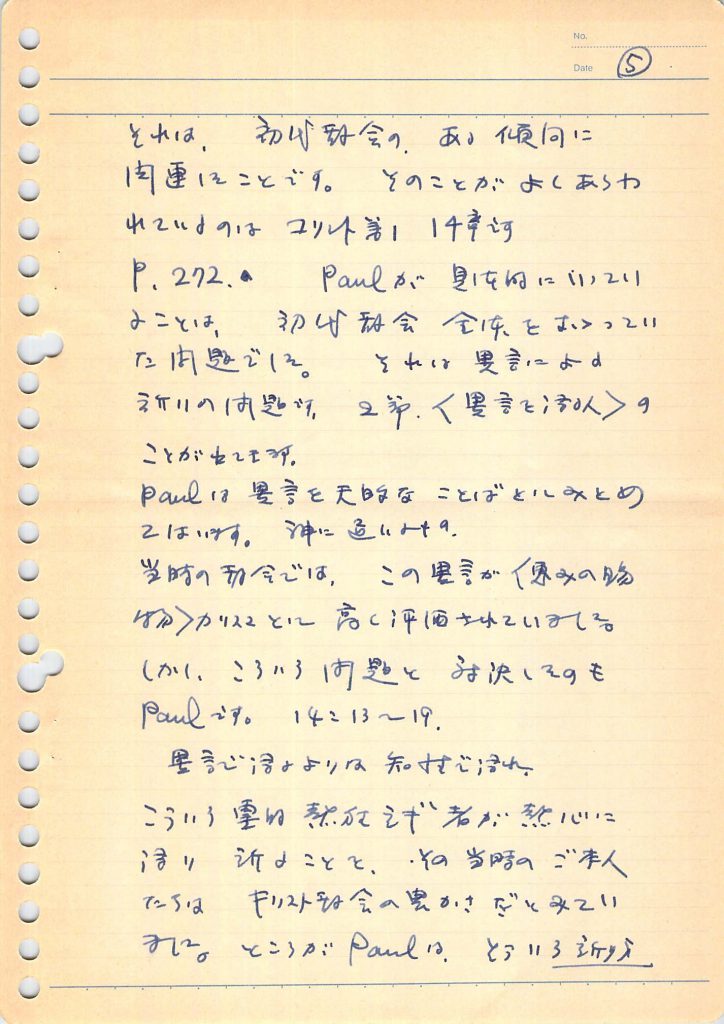 No.
Date ⑤
それは、初代教会の、ある傾向に
関連したことです。そのことがよくあらわ
れているのは コリント第1 14章です
P. 272. Paulが 具体的にいってい
ることは、初代教会 全体をおおってい
た問題でした。それは異言による
祈りの問題です。2節.〈異言を語る人〉の
ことが出てきます。
Paulは異言を天的なことばとしてみとめ
てはいます。神に
当時の教会では、この異言が〈恵みの賜
物〉カリスマとして 高く評価されていました。
しかし、こういう問題と 対決したのも
Paulです。14:13〜19.
異言で語るよりは 知性で語れ。
こういう霊的 熱狂主ギ者が熱心に
語り 祈ることを、その当時のご本人
たちは キリスト教会の豊かさだとみてい
ました。ところがPaulは、そういう祈りが